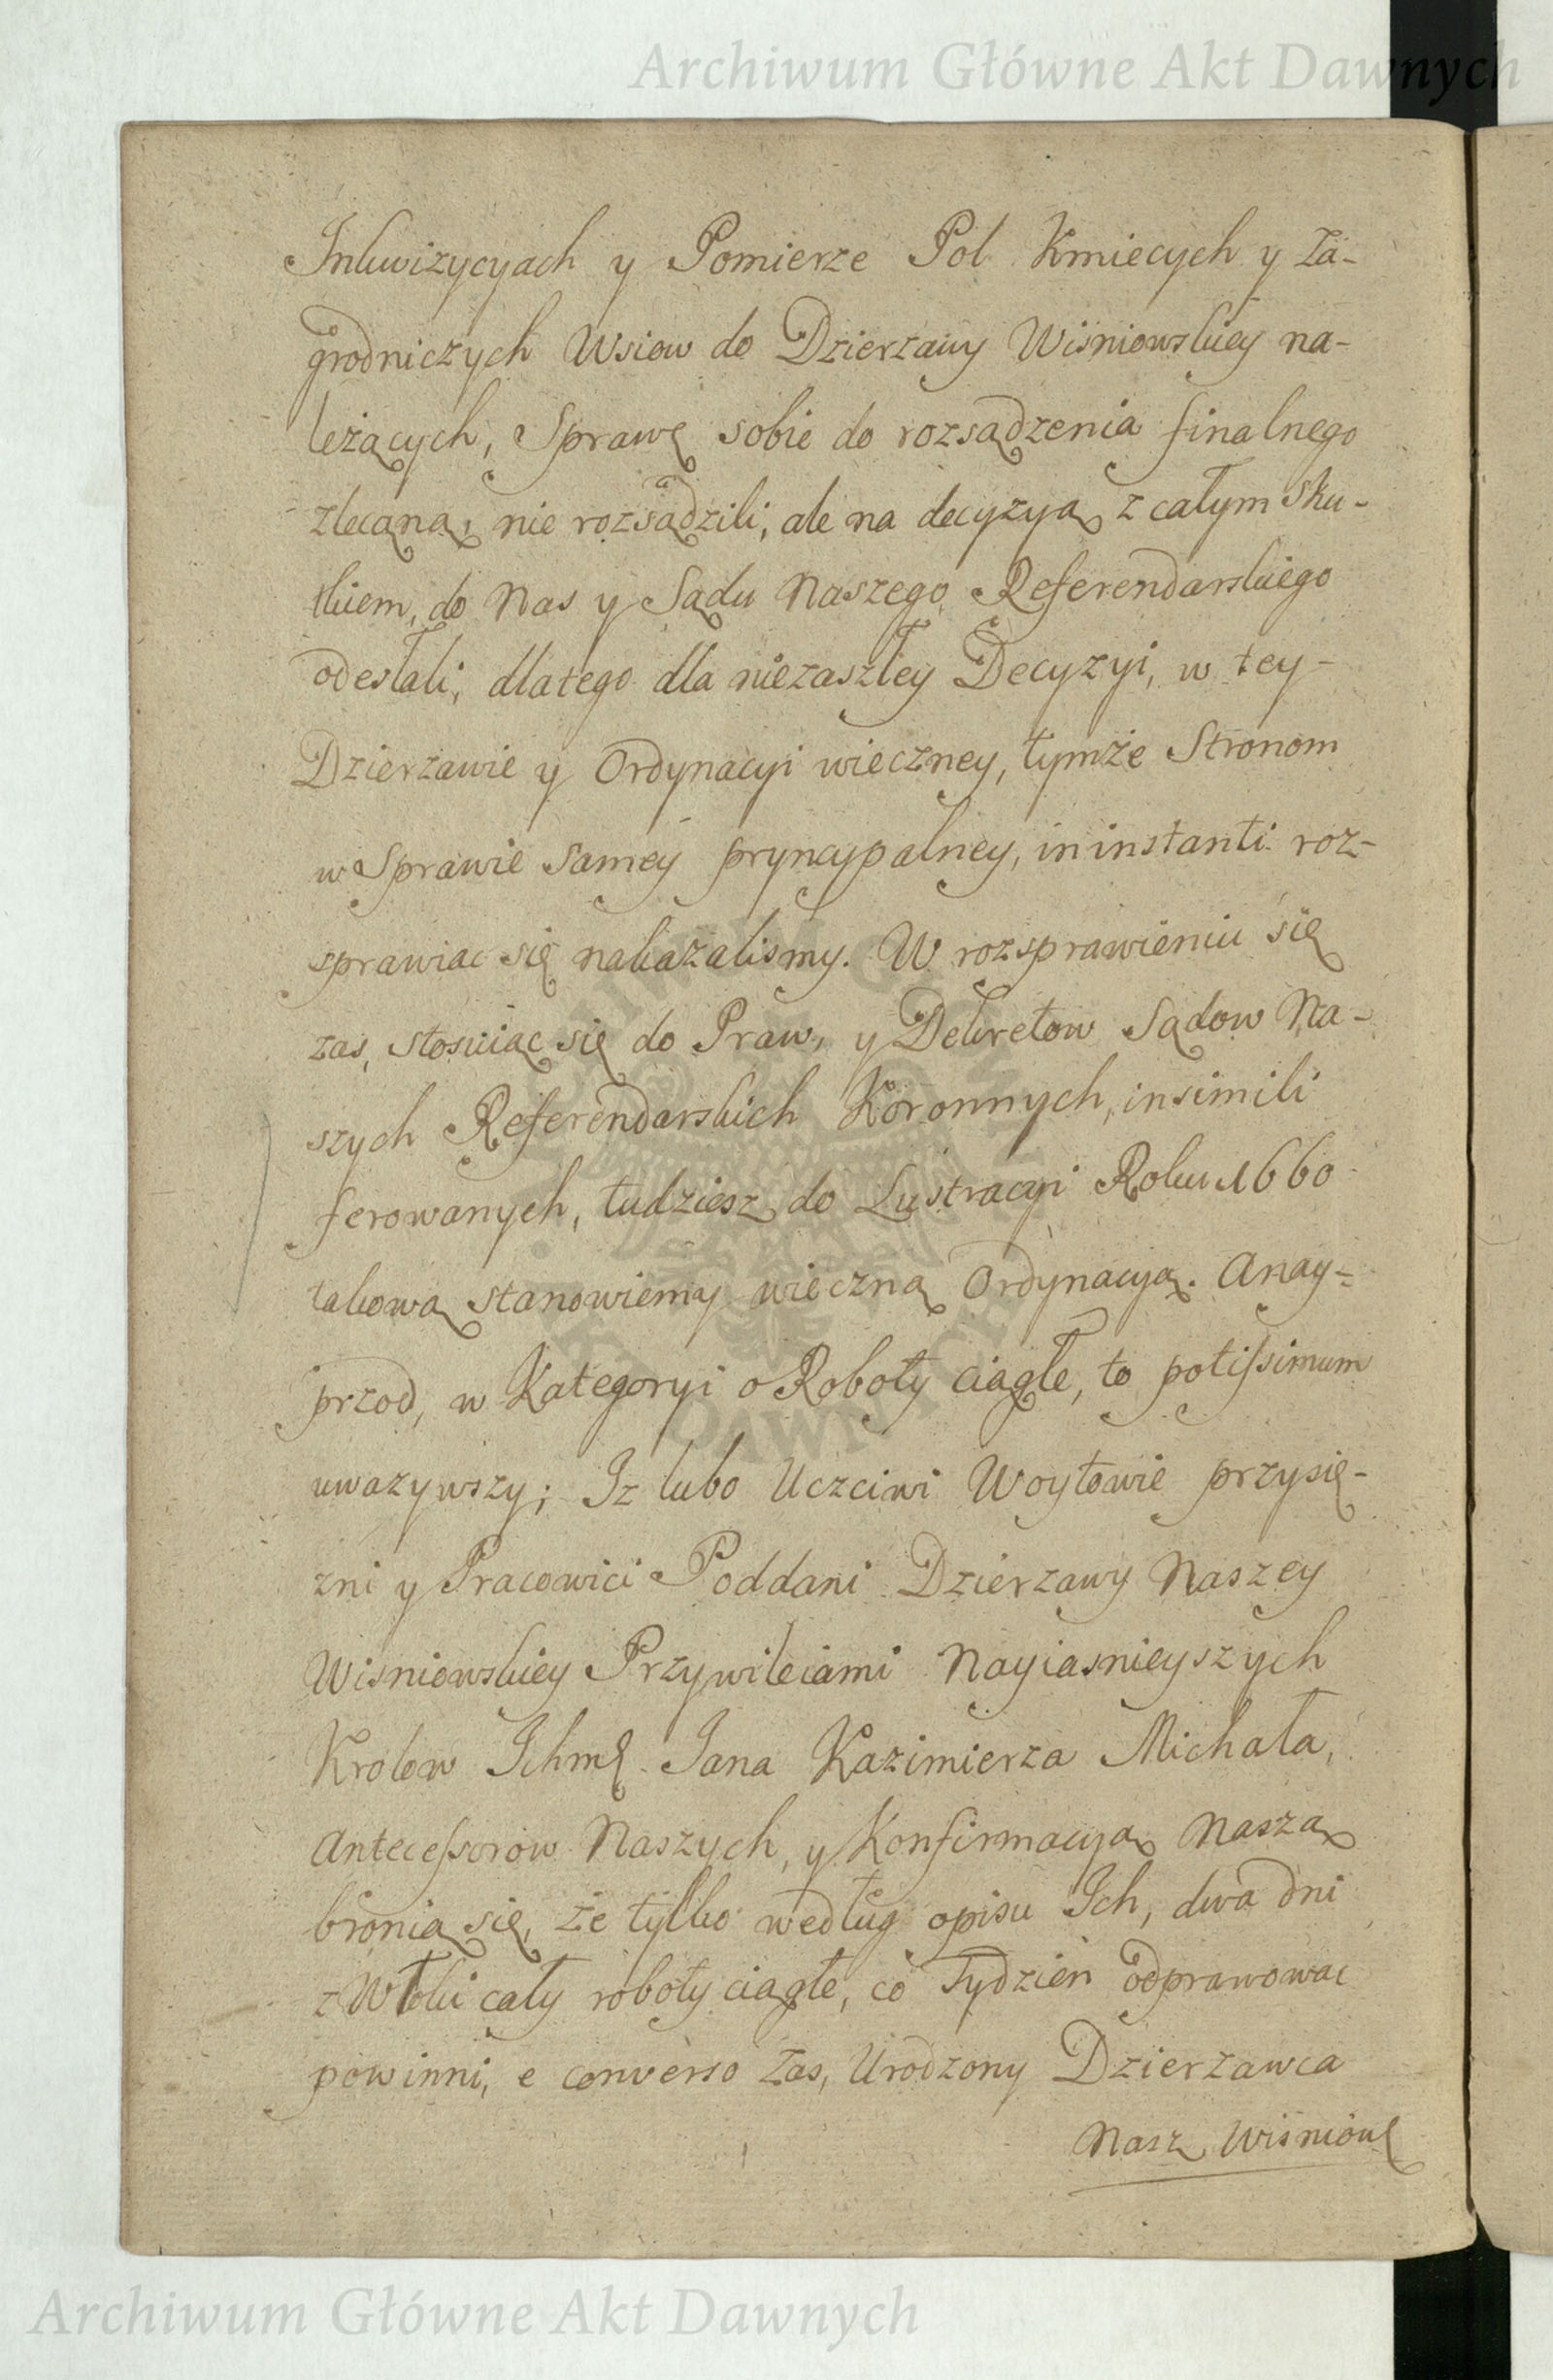 Archiwum Główne Akt Dawnych
Inkwizycyach y Pomierze Pol Kmiecych y Za-
grodniczych Wsiow do Dzierzawy Wisniowskiey na-
leżących, Sprawę sobie do rozsądzenia finalnego
zlecaną, nie rozsądzili, ale na decyzyą z całym sku-
tkiem, do Nas y Sądu Naszego Referendarskiego
odesłali, dlatego dla niezaszłey Decyzyi, w tey-
Dzierzawie y Ordynacyi wieczney, tymże Stronom
w Sprawie samey pryncypalney, in instanti roz-
sprawiac się nakazalismy. W rozsprawieniu się
zas, stosuiąc się do Praw, y Dekretow Sądow Na-
szych Referendarskich Koronnych, in simili
ferowanych, tudziesz do Lustracyi Roku 1660
takową stanowiemy wieczną Ordynacyą. Anay-
przod, w Kategoryi o Roboty ciągłe, to potissimum
uwazywszy; Iz lubo Uczciwi Woytowie przysię-
zni y Pracowici Poddani Dzierzawy Naszey
Wisniowskiey Przywileiami Nayiasnieyszych
Krolow Ichmę Jana Kazimierza Michała,
Antecessorow Naszych, y Konfirmacyą Naszą
bronią się, że tylko według opisu Ich, dwa dni
z Włoki cały roboty ciągłe, co Tydzień odprawowac
powinni, e converso zas, Urodzony Dzierzawca
Nasz Wisniow
ARCHIWUM GŁÓWNE AKT DAWNYCH
Archiwum Główne Akt Dawnych